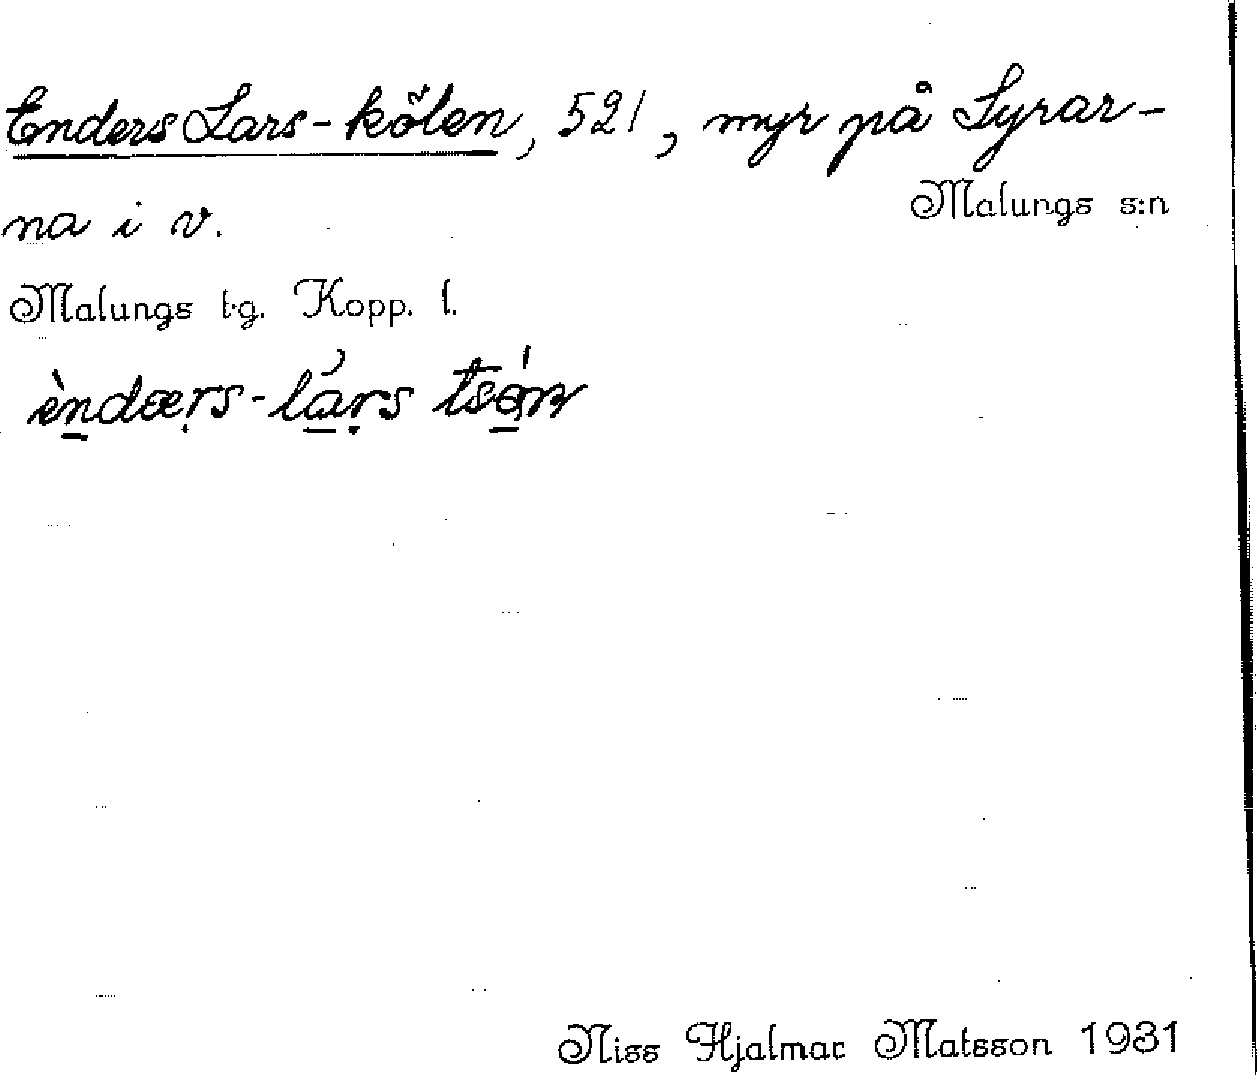 Enders Lars-kölen, 521, myr på Syrar-
Malungs s:n
na i v.
Malungs t.g. Kopp. l.
èndærs-lárs tsǫ́n
Niss Hjalmar Matsson 1931